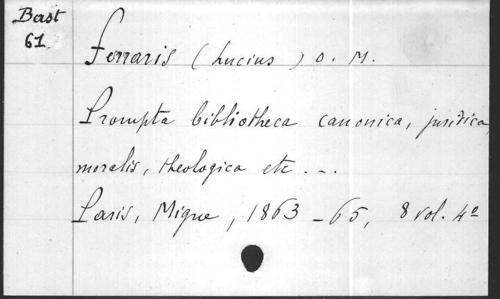 Bast
61
Ferraris (Lucius) O. M.
Prompta bibliotheca canonica, juridica,
moralis, theologica etc ...
Paris, Migne, 1863-65, 8 vol. 4º